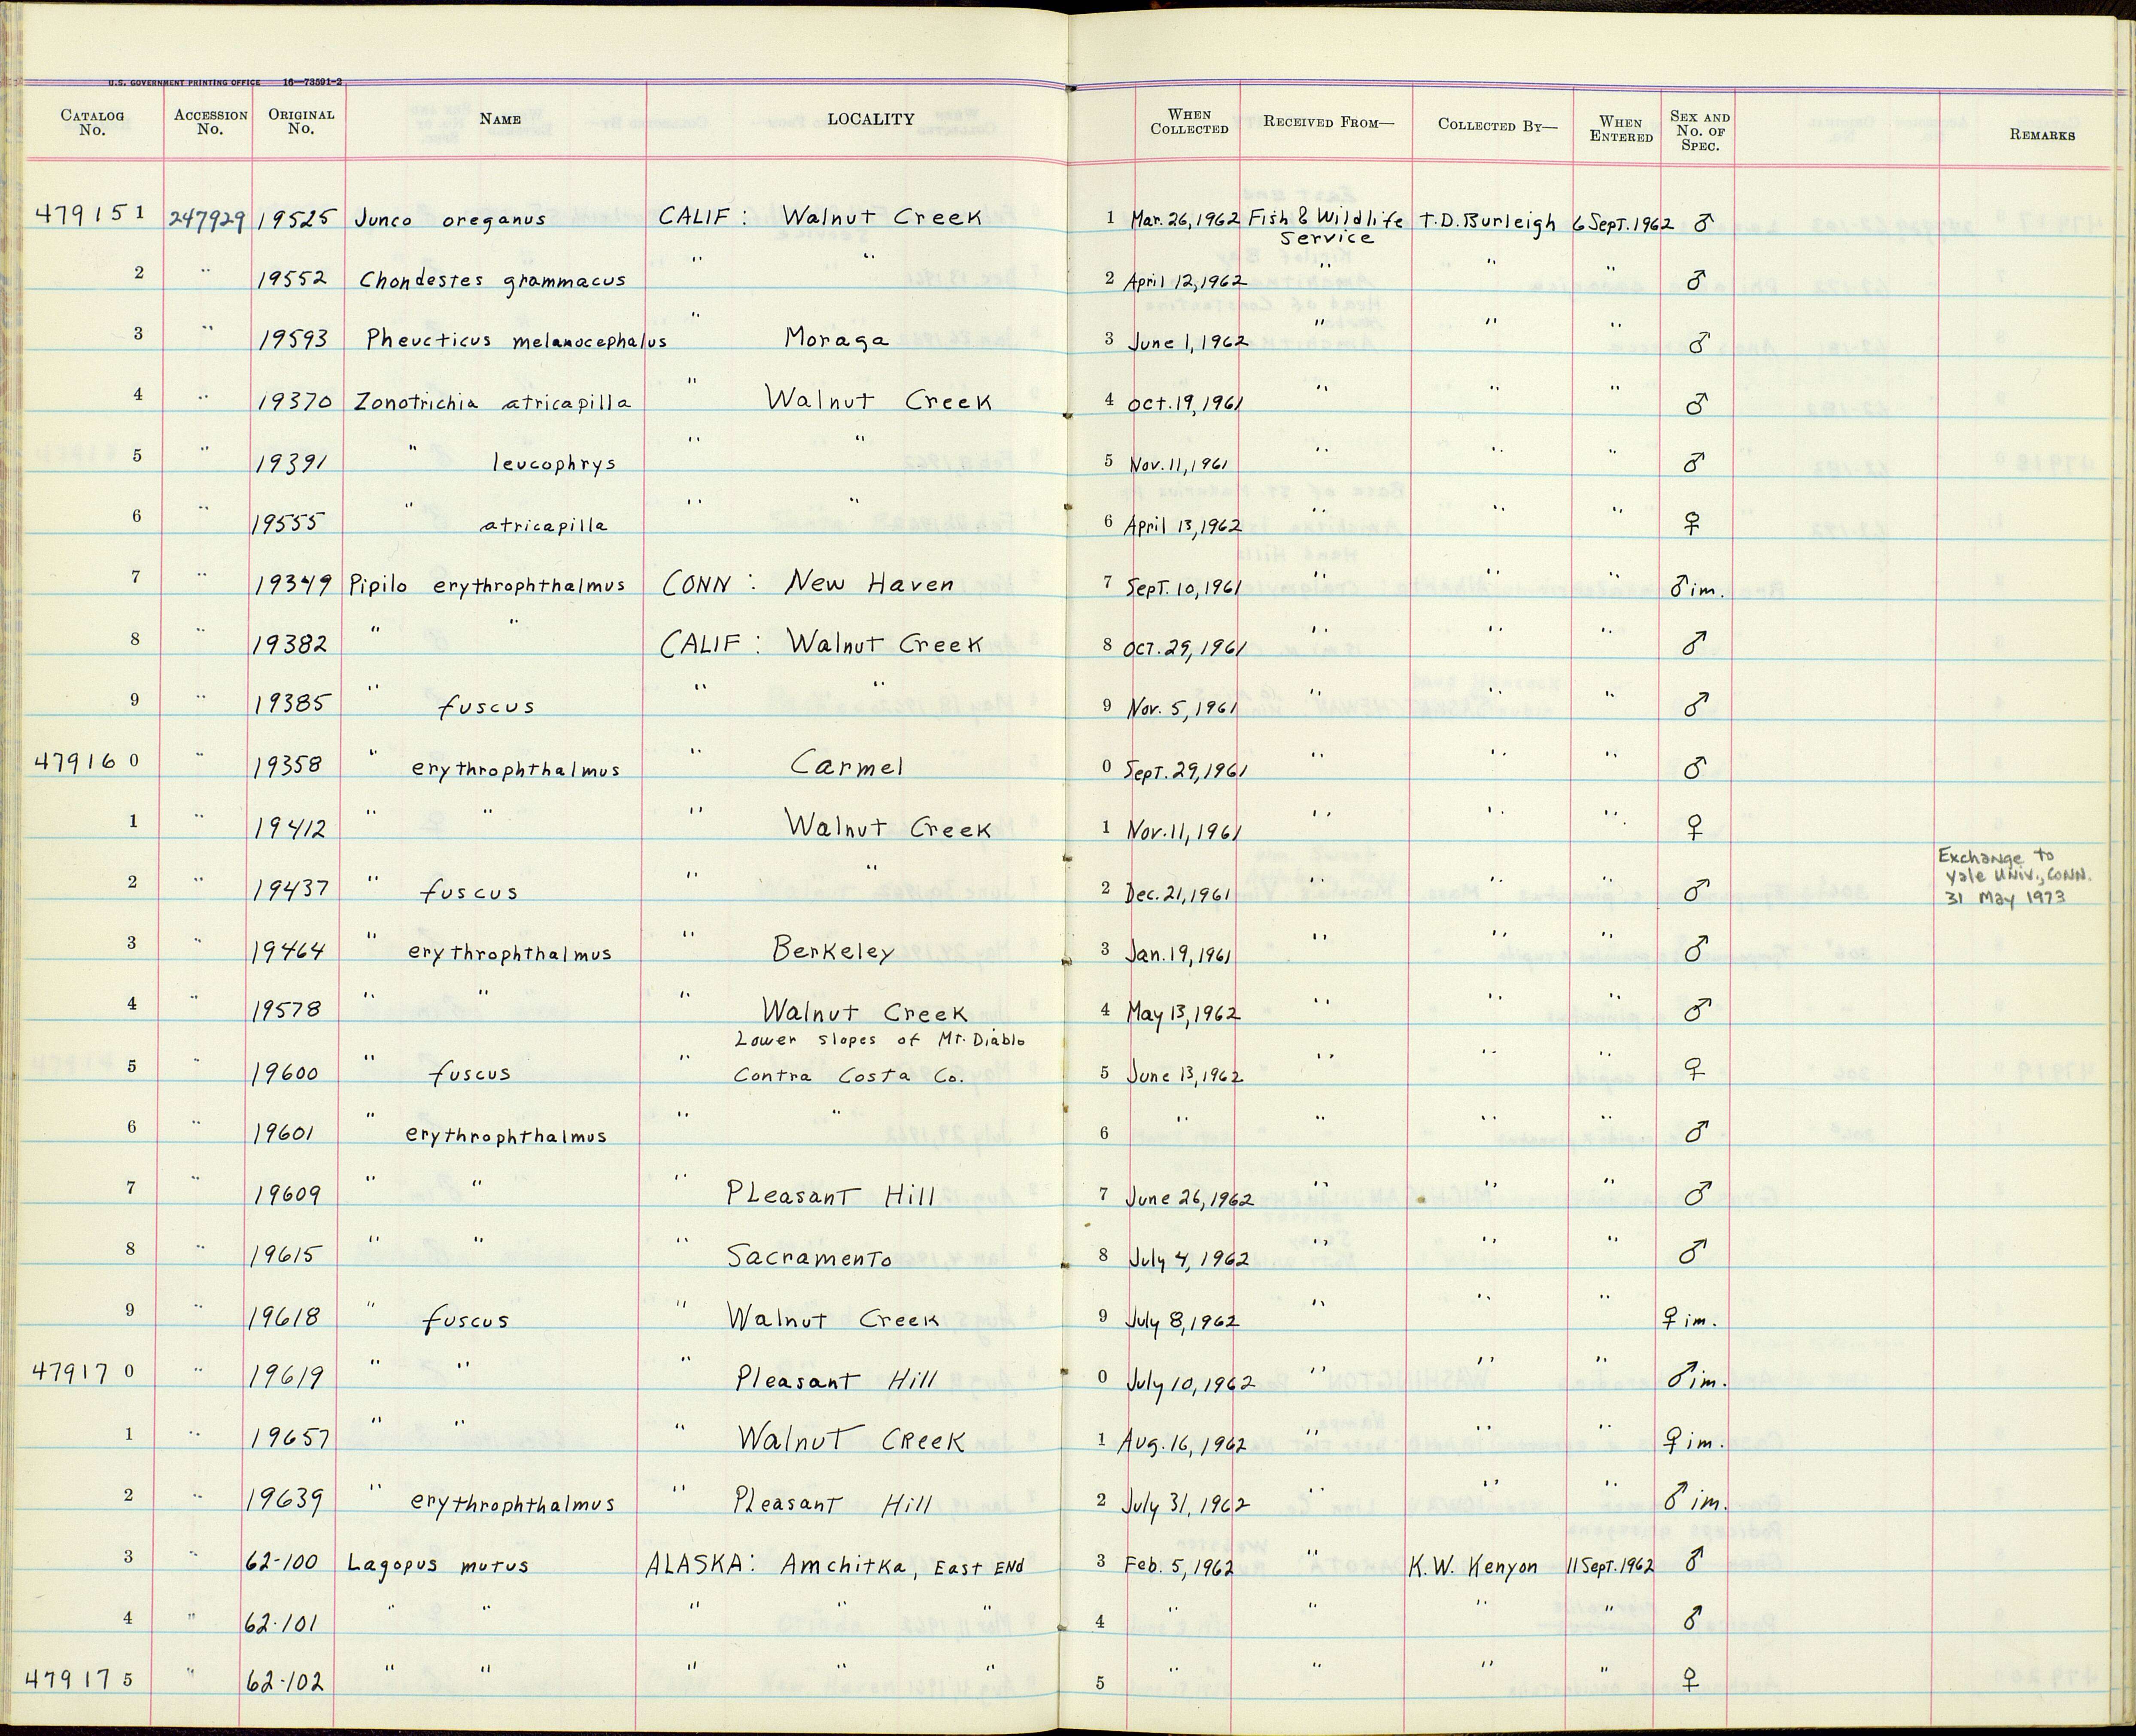 U.S. GOVERNMENT PRINTING OFFICE 16—73591-2
CATALOG No. ACCESSION No. ORIGINAL No. NAME LOCALITY WHEN COLLECTED RECEIVED FROM— COLLECTED BY— WHEN ENTERED SEX AND No. OF SPEC. REMARKS
479151 247929 19525 Junco oreganus CALIF: Walnut Creek 1 Mar. 26, 1962 Fish & Wildlife Service T.D. Burleigh 6 Sept. 1962 ♂
2 " 19552 Chondestes grammacus " " 2 April 12, 1962 " " " ♂
3 " 19593 Pheucticus melanocephalus " Moraga 3 June 1, 1962 " " " ♂
4 " 19370 Zonotrichia atricapilla " Walnut Creek 4 Oct. 19, 1961 " " " ♂
5 " 19391 " leucophrys " " 5 Nov. 11, 1961 " " " ♂
6 " 19555 " atricapilla " " 6 April 13, 1962 " " " ♀
7 " 19349 Pipilo erythrophthalmus CONN: New Haven 7 Sept. 10, 1961 " " " ♂ im.
8 " 19382 " " CALIF: Walnut Creek 8 Oct. 29, 1961 " " " ♂
9 " 19385 " fuscus " " 9 Nov. 5, 1961 " " " ♂
479160 " 19358 " erythrophthalmus " Carmel 0 Sept. 29, 1961 " " " ♂
1 " 19412 " " " Walnut Creek 1 Nov. 11, 1961 " " " ♀
2 " 19437 " fuscus " " 2 Dec. 21, 1961 " " " ♂ Exchange to Yale Univ., Conn. 31 May 1973
3 " 19464 " erythrophthalmus " Berkeley 3 Jan. 19, 1961 " " " ♂
4 " 19578 " " " Walnut Creek 4 May 13, 1962 " " " ♂
Lower slopes of Mt. Diablo
5 " 19600 " fuscus " Contra Costa Co. 5 June 13, 1962 " " " ♀
6 " 19601 " erythrophthalmus " " 6 " " " " ♂
7 " 19609 " " " Pleasant Hill 7 June 26, 1962 " " " ♂
8 " 19615 " " " Sacramento 8 July 4, 1962 " " " ♂
9 " 19618 " fuscus " Walnut Creek 9 July 8, 1962 " " " ♀ im.
479170 " 19619 " " " Pleasant Hill 0 July 10, 1962 " " " ♂ im.
1 " 19657 " " " Walnut Creek 1 Aug. 16, 1962 " " " ♀ im.
2 " 19639 " erythrophthalmus " Pleasant Hill 2 July 31, 1962 " " " ♂ im.
3 " 62-100 Lagopus mutus ALASKA: Amchitka, East End 3 Feb. 5, 1962 " K.W. Kenyon 11 Sept. 1962 ♂
4 " 62-101 " " " " " 4 " " " " ♂
479175 " 62-102 " " " " " 5 " " " " ♀